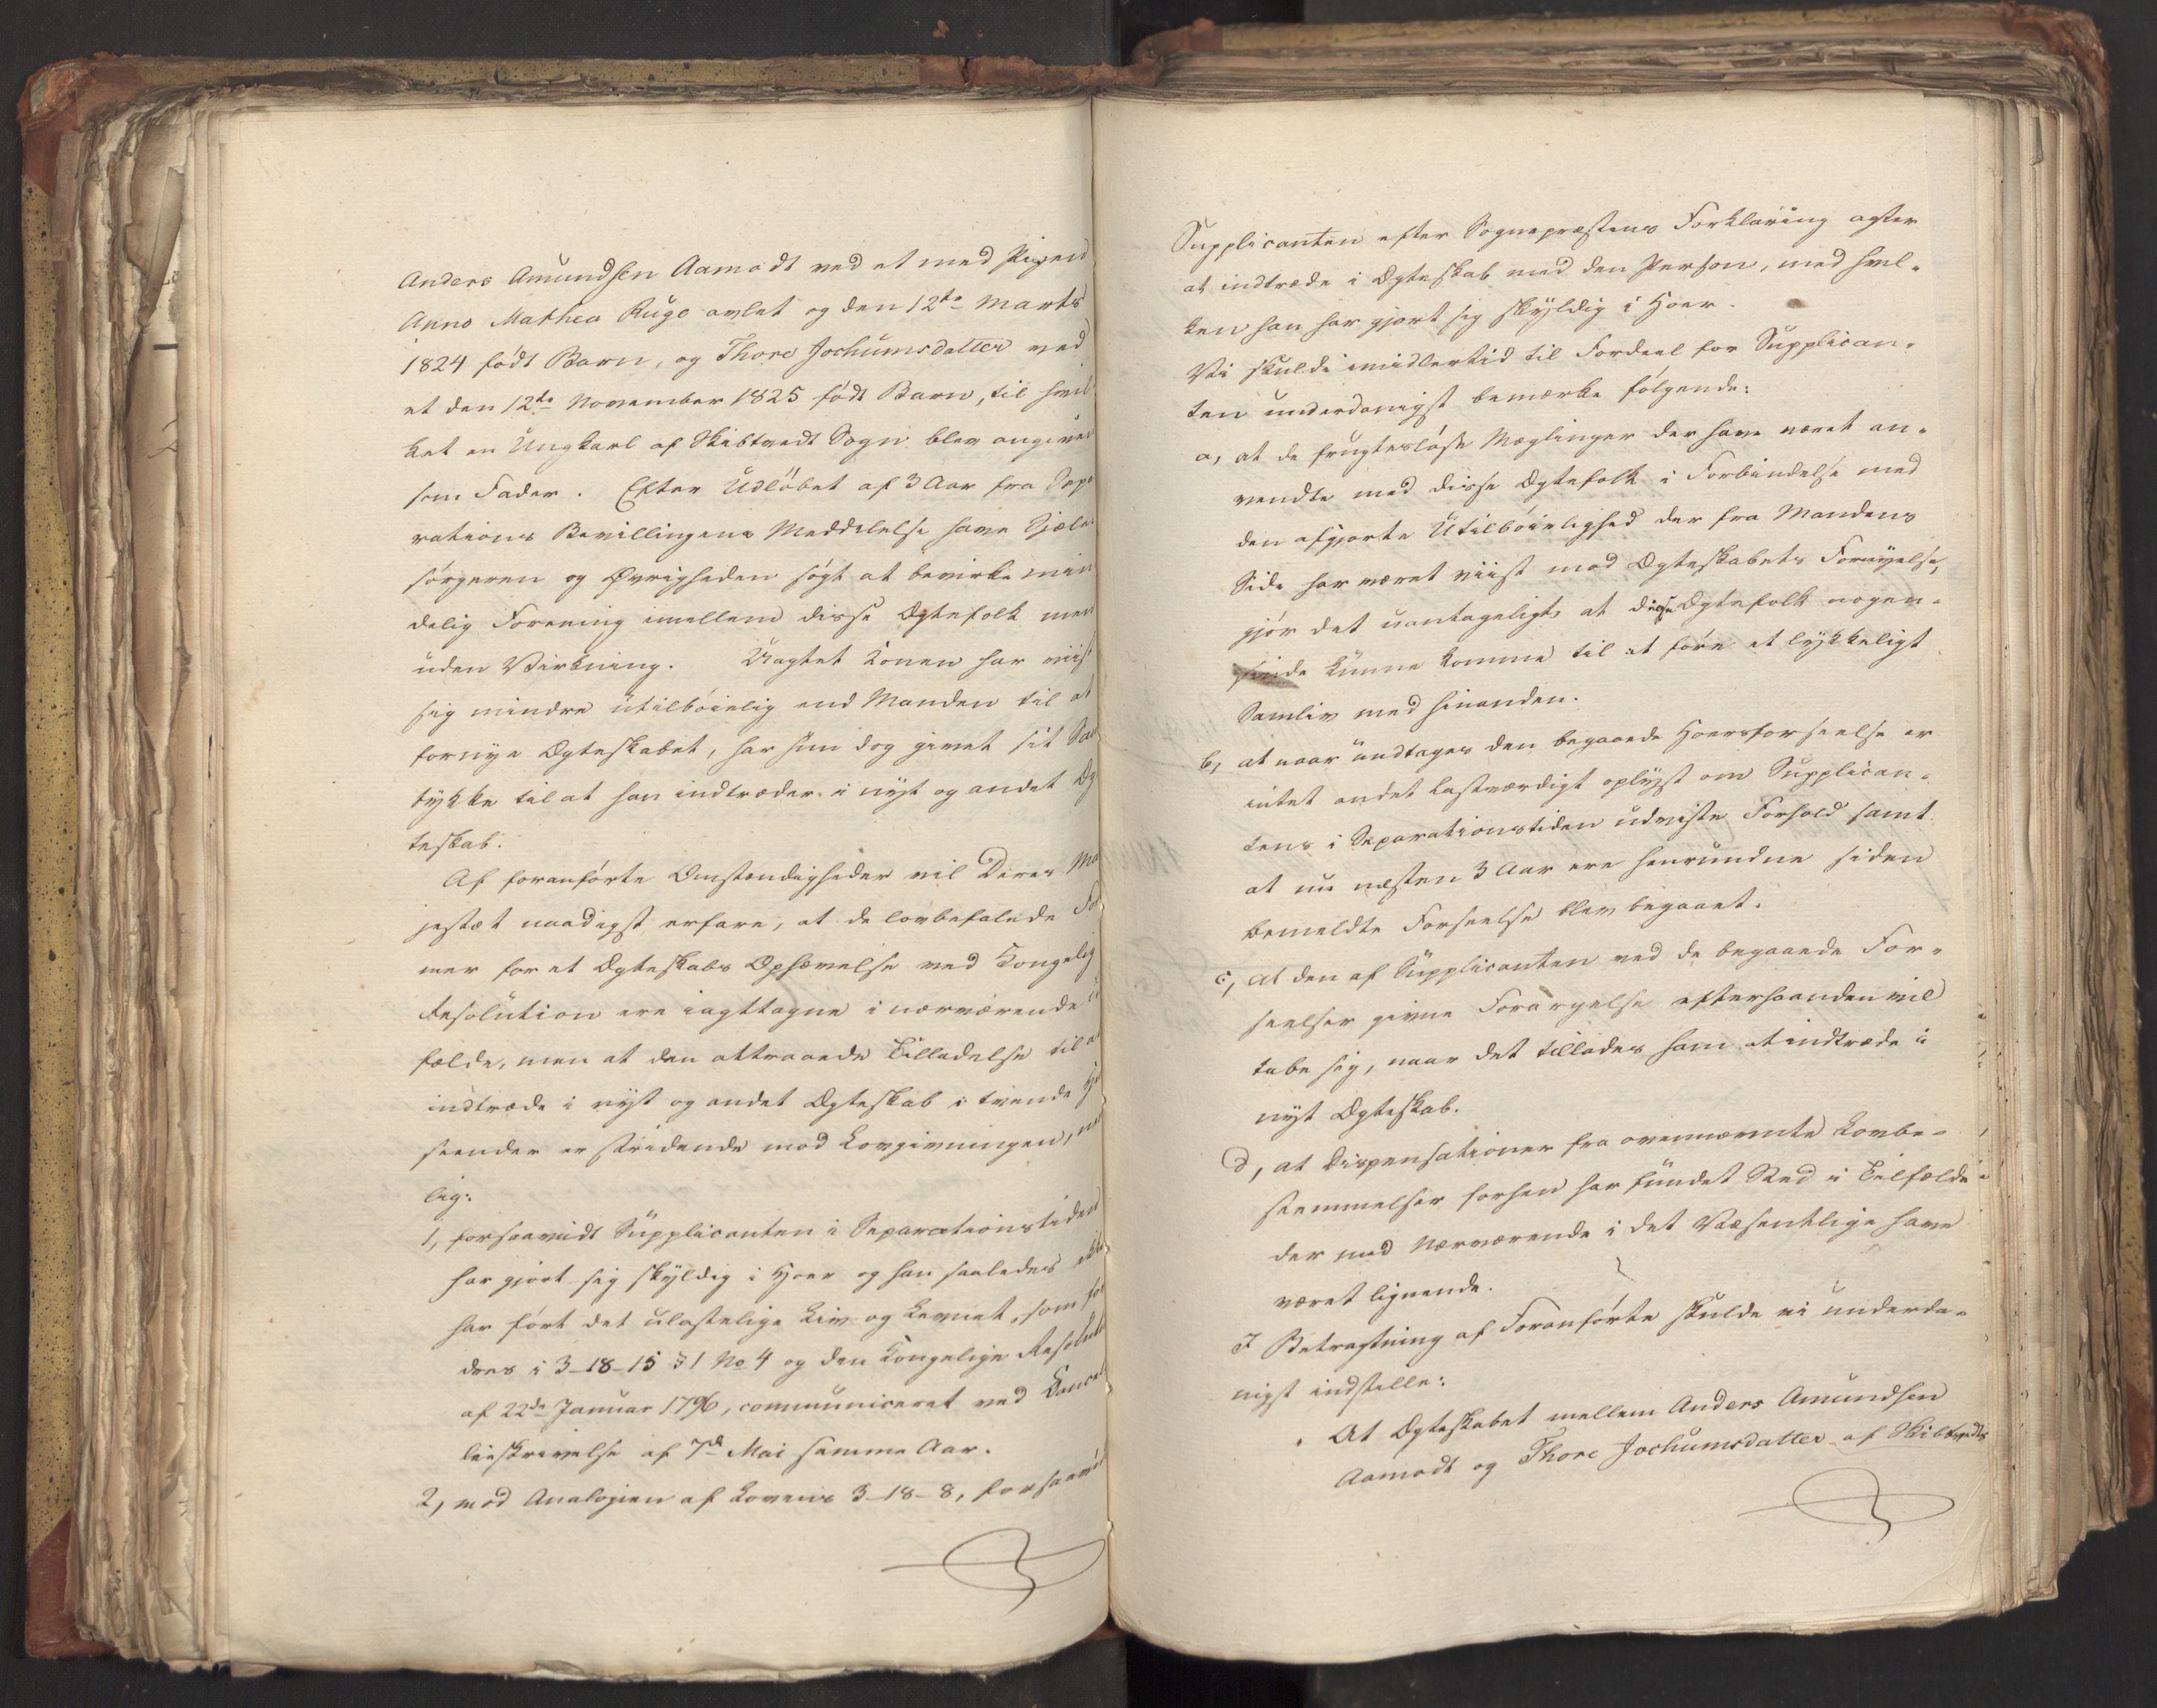 Anders Amundsen Aamodt ved et med Pigen
Anne Mathea Ruge avlet og den 12te Marts
1824 født Barn, og Thore Jochumsdatter ved
et den 12te November 1825 født Barn, til hvil
ket en Ungkarl af Skibtvedt Sogn blev angiven
som Fader. Efter Udløbet af 3 Aar fra Sepa
rations Bevillingens Meddelelse have Sjæle
sørgeren og Øvrigheden søgt at bevirke min
delig Forening imellem disse Ægtefolk men
uden Virkning. Uagtet Konen har viist
sig mindre utilbøielig end Manden til at
fornye Ægteskabet, har hun dog givet sit Sam
tykke til at han indtræder i nyt og andet Æg
teskab.
Af foranførte Omstændigheder vil Deres Ma
jestæt naadigst erfare, at de lovbefalede For
mer for et Ægteskabs Ophævelse ved Kongelig
Resolution ere iagttagne i nærværende
fælde, men at den attraaede Tilladelse til at
indtræde i nyt og andet Ægteskab i tvende Hen
seender er stridende mod Lovgivningen, nem
lig:
1, forsaavidt Supplicanten i Separationstiden
har gjort sig skyldig i Hoer og han saaledes ikke
har ført det ulastelige Liv og Levnet, som for
dres i 3-18-15 § 1 No 4 og den Kongelige Resolution
af 22de Januar 1796, communiceret ved Cancel
lieskrivelse af 7de Mai samme Aar.
2, mod Analogien af Lovens 3-18-8, forsaavidt
Supplicanten efter Sognepræstens Forklaring agter
at indtræde i Ægteskab med den Person, med hvil-
ken han har gjort sig skyldig i Hoer.
Vi skulde imidlertid til Fordeel for Supplican-
ten underdanigst bemærke følgende:
a, at de frugtesløse Mæglinger der have været an-
vendte med disse Ægtefolk i Forbindelse med
den afgjorte Utilbøielighed der fra Mandens
Side har været viist mod Ægteskabets Fornyelse,
gjør det uantageligt, at disse Ægtefolk nogen-
sinde kunne komme til at føre et lykkeligt
Samliv med hinanden.
b, at naar undtages den begaaede Hoersforseelse er
intet andet lastværdigt oplyst om Supplican-
tens i Separationstiden udviste Forhold samt
at nu næsten 3 Aar ere henrundne siden
bemeldte Forseelse blev begaaet.
c, at den af Supplicanten ved de begaaede For-
seelser givne Forargelse efterhaanden vil
tabe sig, naar det tillades ham at indtræde i
nyt Ægteskab.
d, at Dispensationer fra ovennævnte Lovbe-
stemmelser forhen har fundet Sted i Tilfælde
der med Nærværende i det Væsentlige have
været lignende.
I Betragtning af Foranførte skulde vi underda-
nigst indstille:
At Ægteskabet mellem Anders Amundsen
Aamodt og Thore Jochumsdatter af Skibtvedts